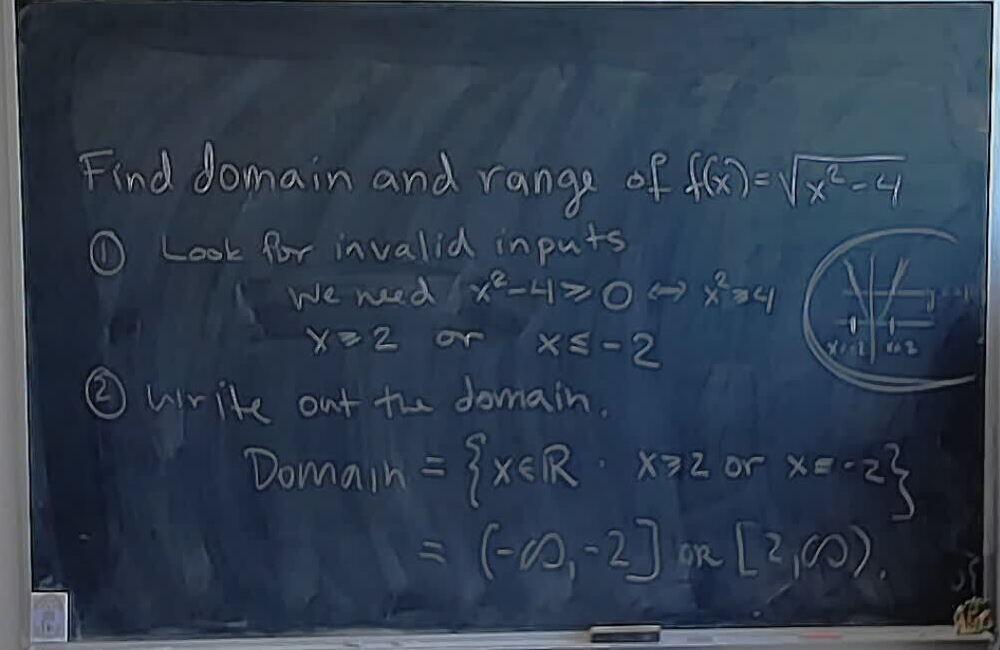 Find domain and range of f(x)=√x²-4
① Look for invalid inputs
We need x²-4≥0 ↔ x²≥4
x≥2 or x≤-2
② Write out the domain.
Domain = {x∈ℝ · x≥2 or x≤-2}
= (-∞,-2] OR [2,∞).
x=-2 x=2